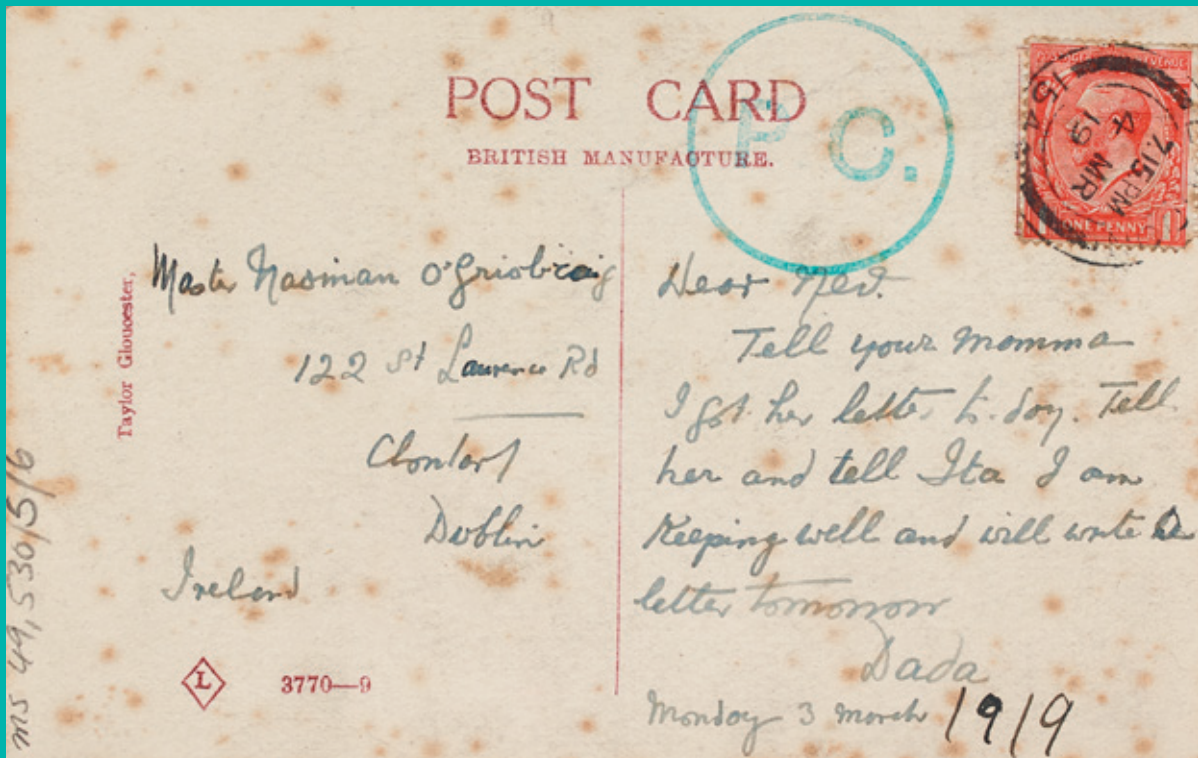 POST CARD
BRITISH MANUFACTURE.
P.C.
ONE PENNY
7.15 PM
4 MR
19
15
Taylor Gloucester,
Master Nasinan O'Griobtaig
122 St Laurence Rd
Clontarf
Dublin
Ireland
L
3770—9
MS 49,530/5/6
Dear Ned.
Tell your momma
I got her letter to-day. Tell
her and tell Ita I am
Keeping well and will write a
letter tomorrow
Dada
Monday 3 March 1919